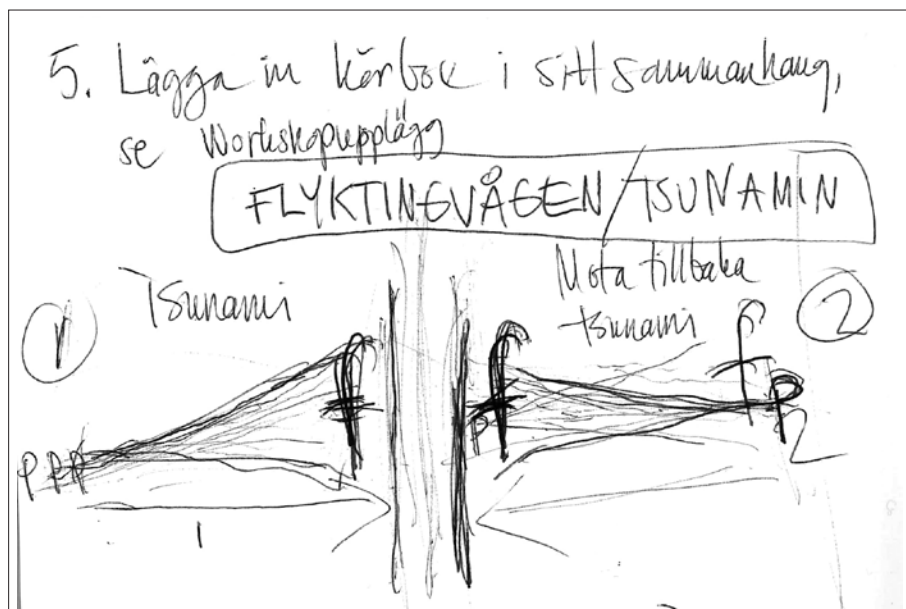 5. Lägga in körbok i sitt sammanhang,
se Workshopupplägg
FLYKTINGVÅGEN/TSUNAMIN
1 Tsunami
Mota tillbaka
tsunami 2
f f f
p p p p p
1 2